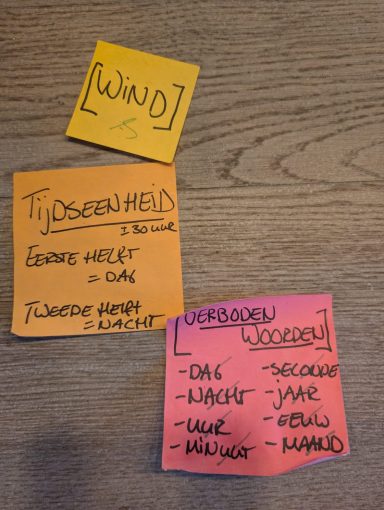 [WIND]
TIJDSEENHEID
± 30 UUR
EERSTE HELFT
= DAG
TWEEDE HELFT
= NACHT
[VERBODEN
WOORDEN]
- DAG
- NACHT
- UUR
- MINUUT
- SECONDE
- JAAR
- EEUW
- MAAND